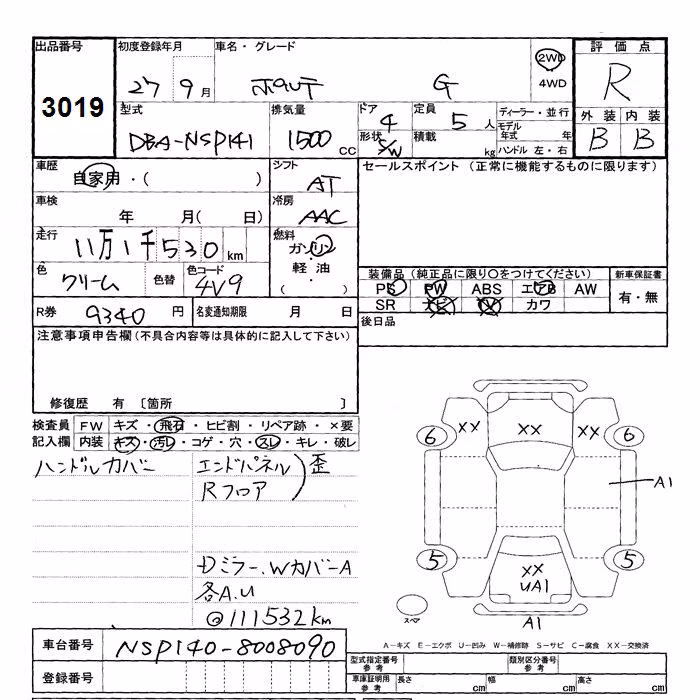 出品番号
3019
初度登録年月
27 9 月
車名・グレード
ポルテ G
2WD
4WD
評価点
R
外装 内装
B B
型式
DBA-NSP141
排気量
1500 CC
ドア
4
形状
S/W
定員
5 人
積載
kg
ディーラー・並行
モデル年式 年
ハンドル 左・右
車歴
自家用・( )
シフト
AT
セールスポイント (正常に機能するものに限ります)
車検
年 月( 日)
冷房
AAC
走行
11万1千530km
燃料
ガソリン
軽油
( )
色
クリーム
色替
色コード
4V9
装備品 (純正品に限り○をつけてください)
PS PW ABS エアB AW
SR ナビ TV カワ
新車保証書
有・無
R券
9340 円
名変通知期限 月 日
後日品
注意事項申告欄(不具合内容等は具体的に記入して下さい)
修復歴 有 〔箇所 〕
検査員記入欄
FW キズ・飛石・ヒビ割・リペア跡・×要
内装 キズ・汚レ・コゲ・穴・スレ・キレ・破レ
ハンドルカバー
エンドパネル
Rフロア
歪
Dミラー、WカバーA
各A.U
@111532km
XX XX XX
6 6
A1
5 5
XX
UA1
スペア
A1
A-キズ E-エクボ U-凹み W-補修跡 S-サビ C-腐食 XX-交換済
車台番号
NSP140-8008090
登録番号
型式指定番号
参考
類別区分番号
参考
車庫証明用
参考
長さ cm 幅 cm 高さ cm